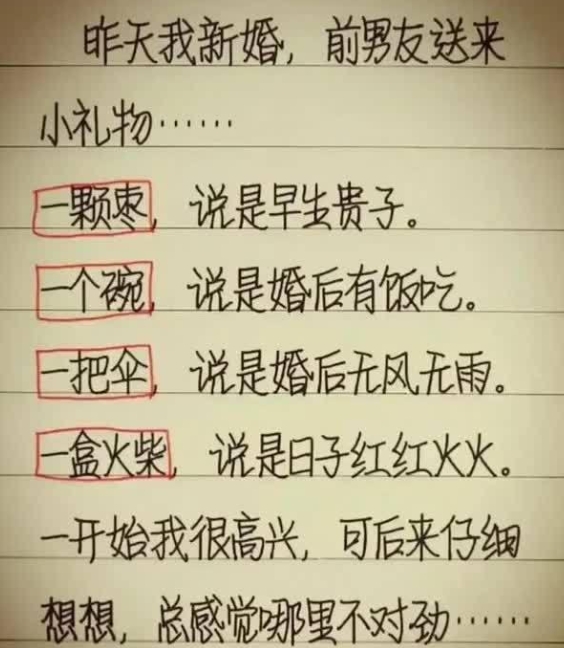 昨天我新婚，前男友送来
小礼物······
一颗枣，说是早生贵子。
一个碗，说是婚后有饭吃。
一把伞，说是婚后无风无雨。
一盒火柴，说是日子红红火火。
一开始我很高兴，可后来仔细
想想，总感觉哪里不对劲······